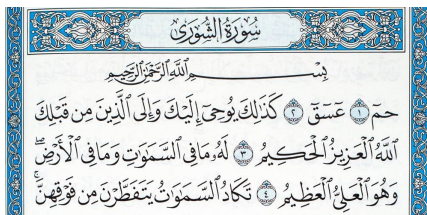 سُورَةُ الشُّورَىٰ
بِسْمِ اللَّهِ الرَّحْمَٰنِ الرَّحِيمِ
حمٓ ١ عٓسٓقٓ ٢ كَذَٰلِكَ يُوحِىٓ إِلَيْكَ وَإِلَى ٱلَّذِينَ مِن قَبْلِكَ
ٱللَّهُ ٱلْعَزِيزُ ٱلْحَكِيمُ ٣ لَهُۥ مَا فِى ٱلسَّمَٰوَٰتِ وَمَا فِى ٱلْأَرْضِۖ
وَهُوَ ٱلْعَلِىُّ ٱلْعَظِيمُ ٤ تَكَادُ ٱلسَّمَٰوَٰتُ يَتَفَطَّرْنَ مِن فَوْقِهِنَّۚ